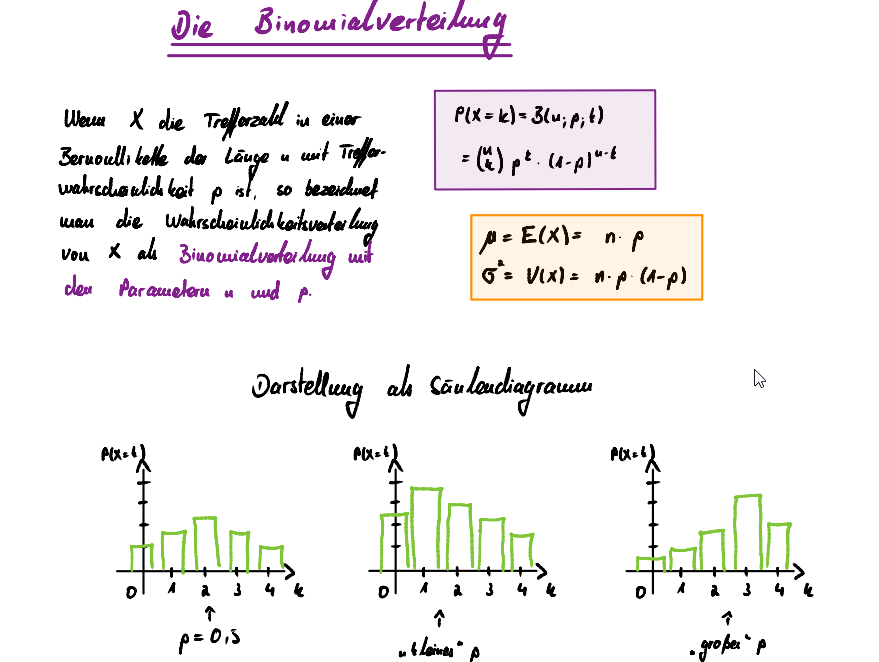 Die Binomialverteilung
Wenn X die Trefferzahl in einer
Bernoullikette der Länge n mit Treffer-
wahrscheinlichkeit p ist, so bezeichnet
man die Wahrscheinlichkeitsverteilung
von X als Binomialverteilung mit
den Parametern n und p.
P(X=k)=B(n;p;k)
=(n k) p^k · (1-p)^n-k
μ = E(X) = n · p
σ² = V(X) = n · p · (1-p)
Darstellung als Säulendiagramm
P(X=k)
0 1 2 3 4 k
↑
p=0,5
P(X=k)
0 1 2 3 4 k
↑
„kleines" p
P(X=k)
0 1 2 3 4 k
↑
„großes" p